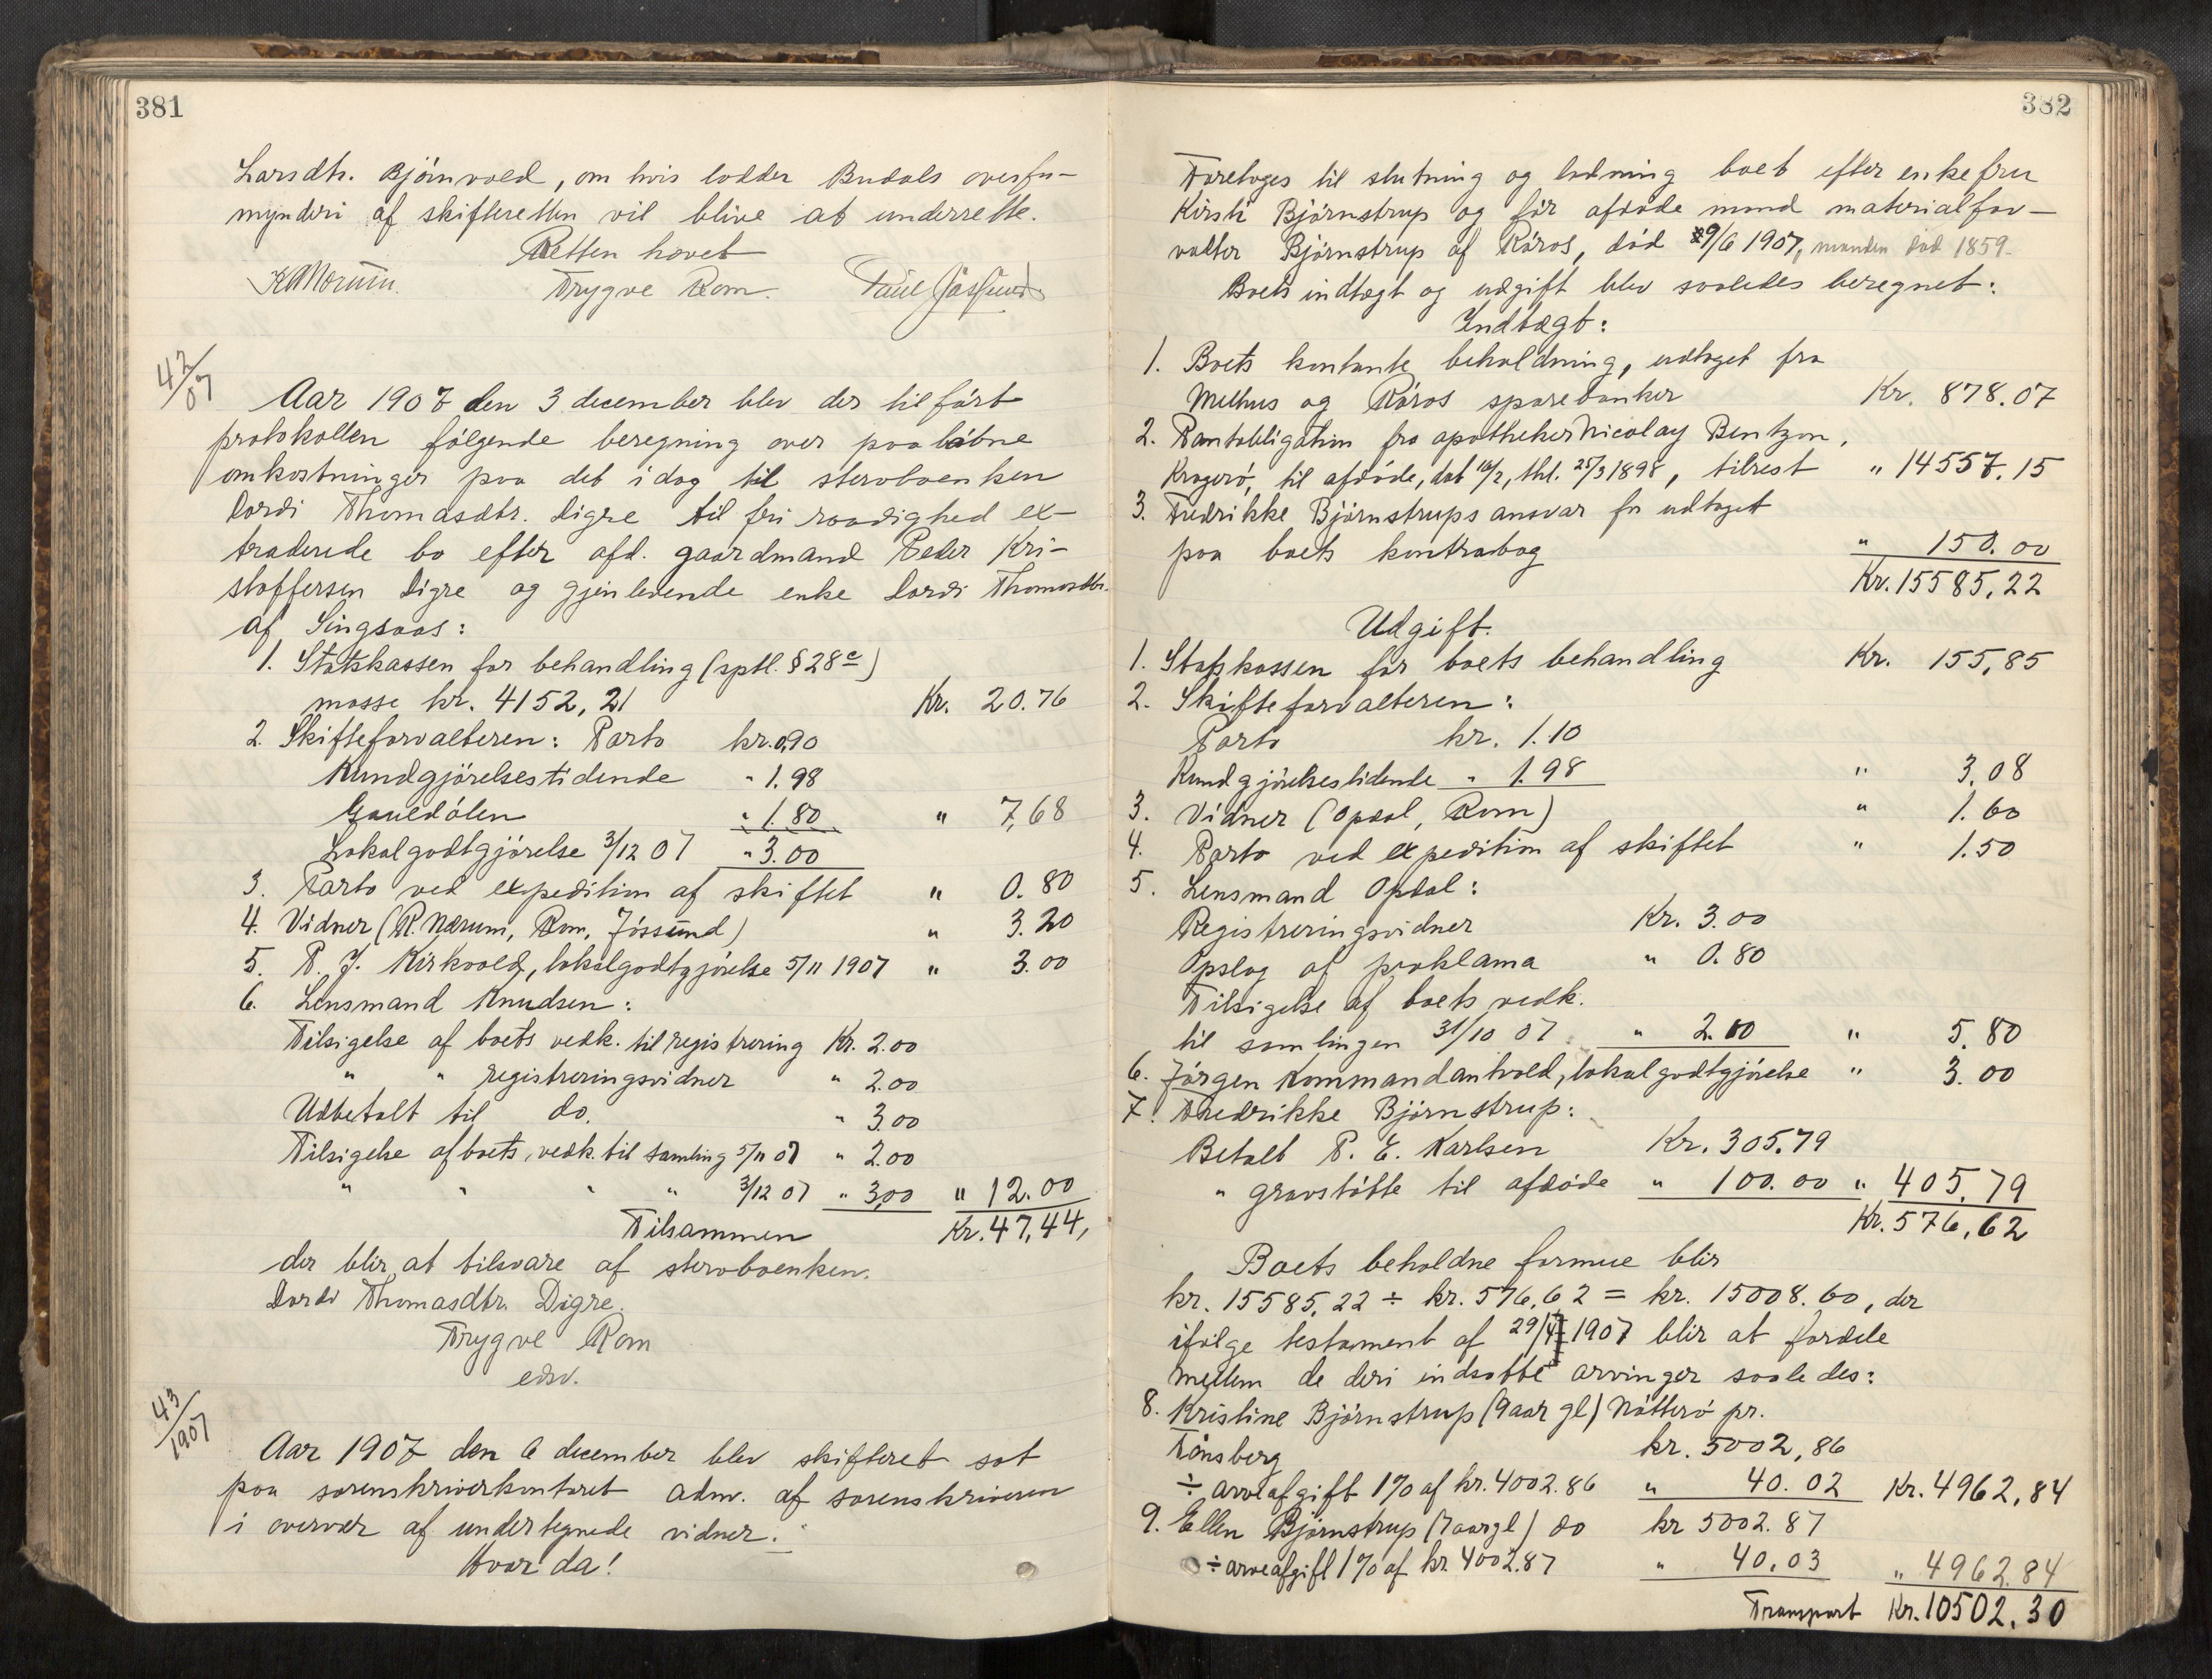 381
Larsdtr. Bjørnvold, om hvis lodder Budals overfor-
mynderi af skifteretten vil blive at underrette.
Retten hævet
Trygve Rom.
42/07
Aar 1907 den 3 december blev der tilført
protokollen følgende beregning over paaløbne
omkostninger paa det idag til stervboenken
Dordi Thomasdtr. Digre til fri raadighed ex-
traderede bo efter afd. gaardmand Peder Kri-
stoffersen Digre og gjenlevende enke Dordi Thomasdtr.
af Singsaas:
1. Statskassen for behandling (sptl. § 28 c)
masse kr. 4152,21 Kr. 20.76
2. Skifteforvalteren: Porto kr. 0,90
Kundgjörelsestidende " 1.98
Gauldölen " 1.80 " 7,68
Lokalgodtgjörelse 3/12 07 " 3.00
3. Porto ved expedition af skiftet " 0.80
4. Vidner (R. Nærum, Rom, Jössund) " 3.20
5. P. J. Kirkvold, lokalgodtgjörelse 5/11 1907 " 3.00
6. Lensmand Knudsen:
Tilsigelse af boets vedk. til registrering Kr. 2.00
" " registreringsvidner " 2.00
Udbetalt til do. " 3.00
Tilsigelse af boets vedk. til samling 5/11 07 " 2.00
" " " " 3/12 07 " 3,00 " 12.00
Tilsammen Kr. 47,44,
der blir at tilsvare af stervboenken.
Dordi Thomasdtr. Digre.
Trygve Rom
edsv.
43/1907
Aar 1907 den 6 december blev skifteret sat
paa sorenskriverkontoret adm. af sorenskriveren
i overvær af undertegnede vidner.
Hvor da!
382
Foretoges til slutning og lodning boet efter enkefru
Kirsti Björnstrup og før afdøde mand materialfor-
valter Björnstrup af Röros, död 9/6 1907, manden död 1859.
Boets indtægt og udgift blev saaledes beregnet:
Indtægt:
1. Boets kontante beholdning, udtaget fra
Melhus og Röros sparebanker Kr. 878.07
2. Pantobligation fra apotheker Nicolay Bentzon,
Kragerö, til afdöde, dat 16/2, thl. 25/3 1898, tilrest " 14557.15
3. Fredrikke Björnstrups ansvar for udtaget
paa boets kontrabog " 150.00
Kr. 15585,22
Udgift.
1. Statskassen for boets behandling Kr. 155,85
2. Skifteforvalteren:
Porto kr. 1.10
Kundgjörelsestidende " 1.98 " 3.08
3. Vidner (Opdal, Rom) " 1.60
4. Porto ved expedition af skiftet " 1.50
5. Lensmand Opdal:
Registreringsvidner Kr. 3.00
Opslag af proklama " 0.80
Tilsigelse af boets vedk.
til samlingen 31/10 07. " 2.00 " 5.80
6. Jörgen Kommandantvold, lokalgodtgjörelse " 3.00
7. Fredrikke Björnstrup:
Betalt P. E. Karlsen Kr. 305.79
" gravstötte til afdöde " 100.00 " 405.79
Kr. 576,62
Boets beholdne formue blir
kr. 15585,22 ÷ kr. 576,62 = kr. 15008.60, der
ifølge testament af 29/4 1907 blir at fordele
mellem de deri indsatte arvinger saaledes:
8. Kristine Björnstrup (9 aar gl) Nötterö pr.
Tönsberg kr. 5002,86
÷ arveafgift 1% af kr. 4002.86 " 40.02 Kr. 4962,84
9. Ellen Björnstrup (7 aar gl) do kr 5002.87
÷ arveafgift 1% af kr. 4002.87 " 40.03 " 4962.84
Transport Kr. 10502.30